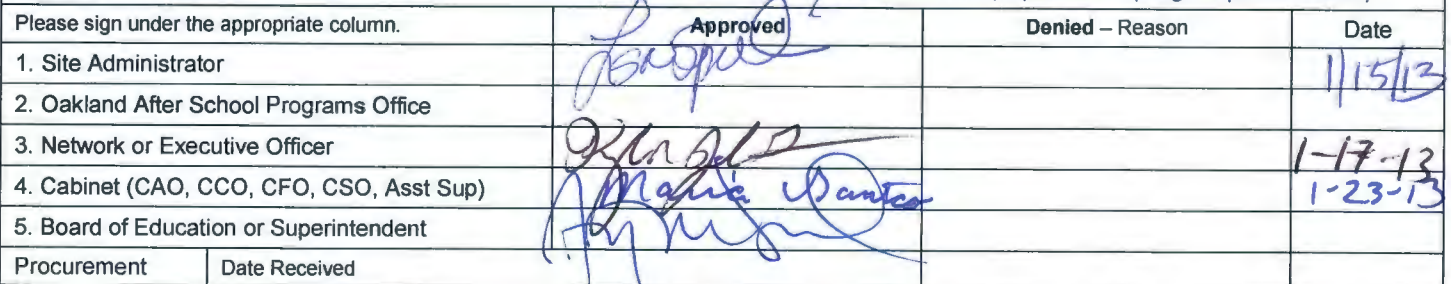 Please sign under the appropriate column. Approved Denied – Reason Date
1. Site Administrator 1/15/13
2. Oakland After School Programs Office
3. Network or Executive Officer 1-17-13
4. Cabinet (CAO, CCO, CFO, CSO, Asst Sup) Maria Santos 1-23-13
5. Board of Education or Superintendent
Procurement Date Received